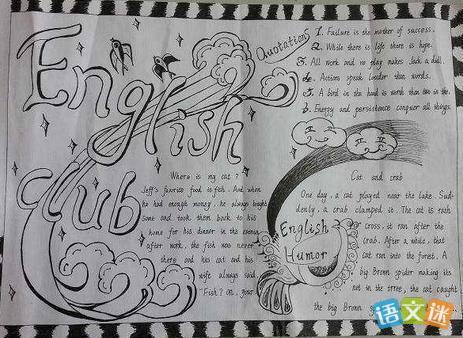 English
club
Quotations
1. Failure is the mother of success.
2. While there is life there is hope.
3. All work and no play makes Jack a dull.
4. Actions speak louder than words.
5. A bird in the hand is worth than two in the.
6. Energy and persistence conquer all things.
Where is my cat?
Jeff's favorite food is fish. And when
he had enough money, he always bought
some and took them back to his
home for his dinner in the evening
after work, the fish was never
there and his cat and his
wife always said,
"Fish? Oh, your
English
Humor
Cat and crab
One day, a cat played near the lake. Sud-
denly, a crab clamped it. The cat is rash
cross, it ran after the
crab. After a while, that
cat ran into the forest. A
big Brown spider making its
net in the tree, the cat caught
the big Brown
语文迷